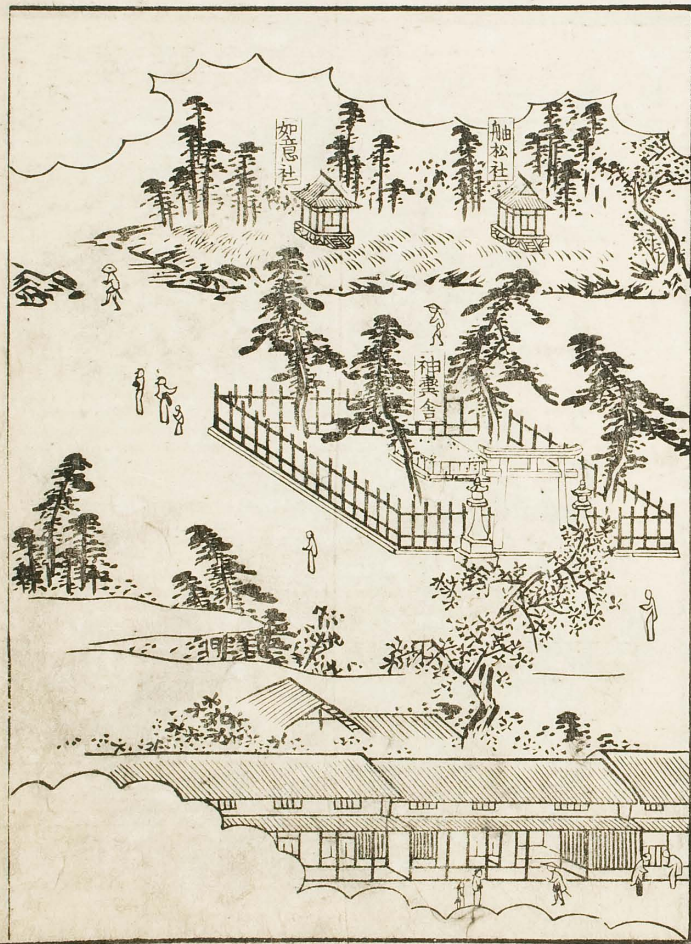 舳松社
如意社
神輿舍